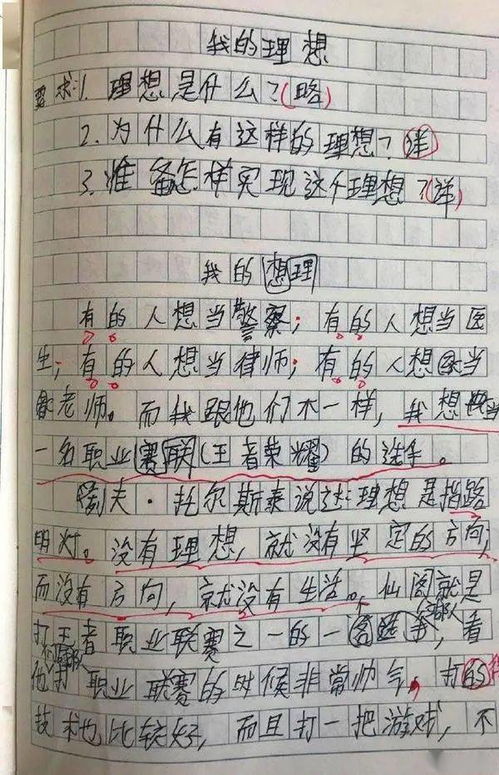 我的理想
要求:1. 理想是什么?(略)
2. 为什么有这样的理想?(详)
3. 准备怎样实现这个理想?(详)
我的想理
有的人想当警察;有的人想当医
生;有的人想当律师;有的人想当
老师。而我跟他们不一样,我想
一名职业赛联(王者荣耀)的选手。
列夫·托尔斯泰说过:理想是指路
明灯。没有理想,就没有坚定的方向;
而没有方向,就没有生活。仙阁就是
打王者职业联赛之一的一名选手,看
他打职业联赛的时候非常帅气,打的
技术也比较好,而且打一把游戏,不